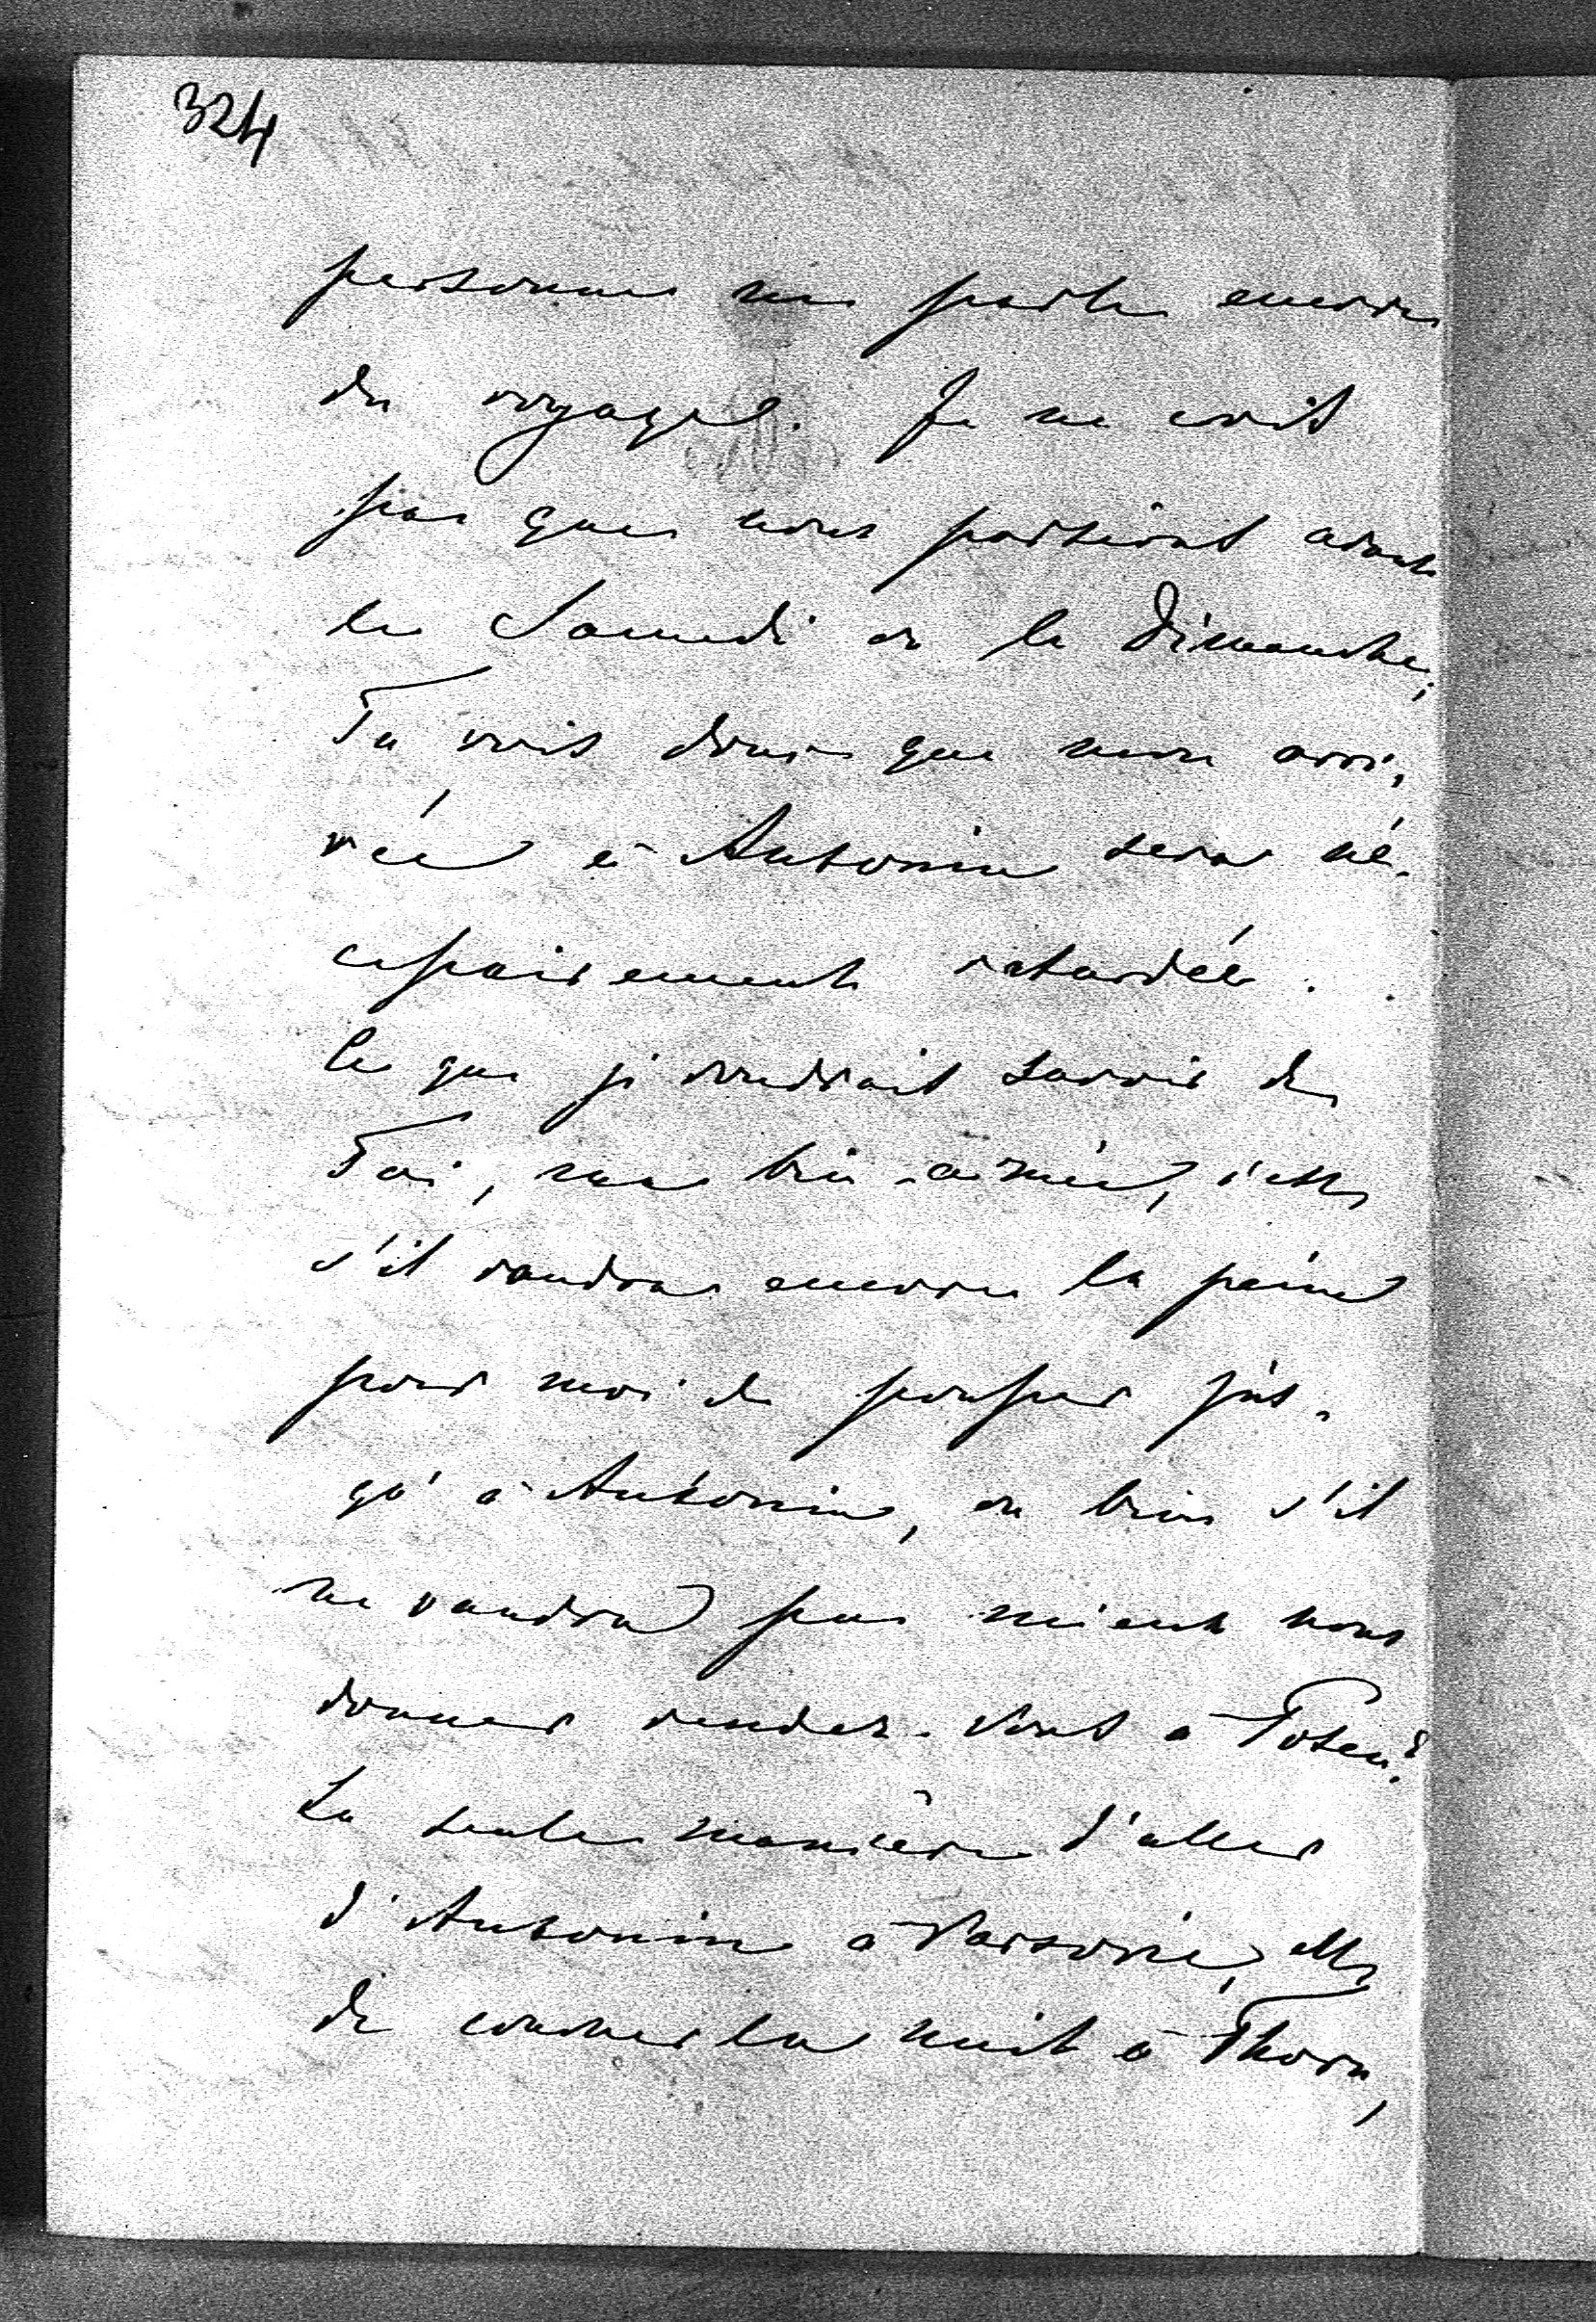 324
personne ne parle encore
du voyage. Je ne crois
pas que nous partions avant
le Samedi ou le Dimanche;
Tu vois donc que mon arri-
vée à Antonin sera né-
cessairement retardée.
Ce que je voudrais savoir de
Toi, ma bien-aimée, c'est
s'il vaudra encore la peine
pour moi de pousser jus-
qu'à Antonin, ou bien s'il
ne vaudra pas mieux nous
donner rendez-vous à Posen?
La seule manière d'aller
d'Antonin à Varsovie, est
de coucher la nuit à Thorn,